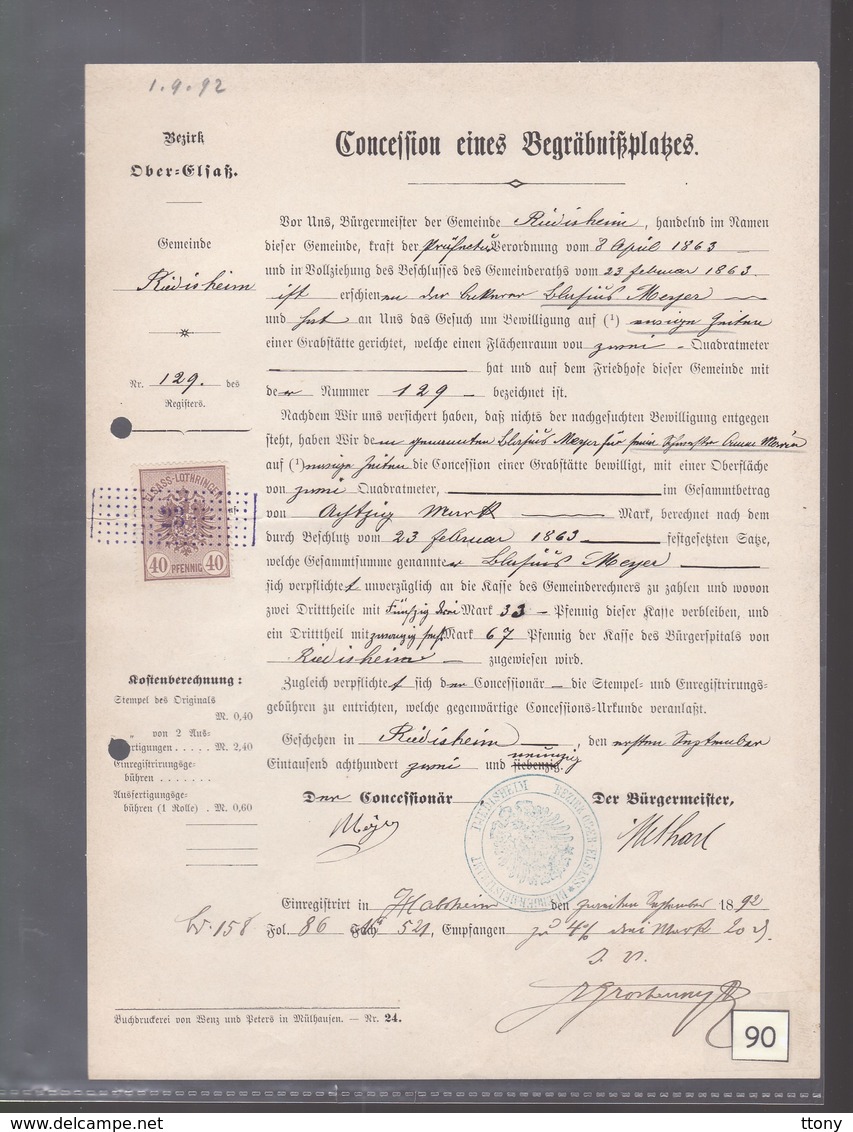 1.9.92
Bezirk
Ober-Elsaß.
Gemeinde
Riedisheim
Nr. 129. des
Registers.
ELSASS-LOTHRINGEN
23
40 PFENNIG 40
Kostenberechnung:
Stempel des Originals
M. 0,40
„ von 2 Aus-
fertigungen . . . . . M. 2,40
Einregistrirungsge-
bühren . . . . . . .
Ausfertigungsge-
bühren (1 Rolle) . M. 0,60
Concession eines Begräbnißplatzes.
Vor Uns, Bürgermeister der Gemeinde Riedisheim, handelnd im Namen
dieser Gemeinde, kraft der Präfectur Verordnung vom 8 April 1863
und in Vollziehung des Beschlusses des Gemeinderaths vom 23 Februar 1863.
ist erschienen der Blasius Meyer
und hat an Uns das Gesuch um Bewilligung auf (¹) ewige Zeiten
einer Grabstätte gerichtet, welche einen Flächenraum von zwei Quadratmeter
hat und auf dem Friedhofe dieser Gemeinde mit
der Nummer 129 bezeichnet ist.
Nachdem Wir uns versichert haben, daß nichts der nachgesuchten Bewilligung entgegen
steht, haben Wir dem genannten Blasius Meyer für seine Schwester Anna Maria
auf (¹) ewige Zeiten die Concession einer Grabstätte bewilligt, mit einer Oberfläche
von zwei Quadratmeter, im Gesammtbetrag
von Achtzig Mark Mark, berechnet nach dem
durch Beschluß vom 23 Februar 1863 festgesetzten Satze,
welche Gesammtsumme genannter Blasius Meyer
sich verpflichtet unverzüglich an die Kasse des Gemeinderechners zu zahlen und wovon
zwei Dritttheile mit Fünfzig drei Mark 33 Pfennig dieser Kasse verbleiben, und
ein Dritttheil mit zwanzig sechs Mark 67 Pfennig der Kasse des Bürgerspitals von
Riedisheim zugewiesen wird.
Zugleich verpflichtet sich der Concessionär die Stempel- und Enregistrirungs-
gebühren zu entrichten, welche gegenwärtige Concessions-Urkunde veranlaßt.
Geschehen in Riedisheim, den ersten September
Eintausend achthundert zwei und siebenzig. neunzig
Der Concessionär
Der Bürgermeister,
Meyer
BÜRGERMEISTERAMT RIEDISHEIM BEZIRK OBER ELSASS
Einregistrirt in Habsheim den zweiten September 1892
158 Fol. 86 Fach 521, Empfangen zu 4% drei Mark 20 Pf.
Buchdruckerei von Wenz und Peters in Mülhausen. — Nr. 24.
90
delcampe.net
ttony